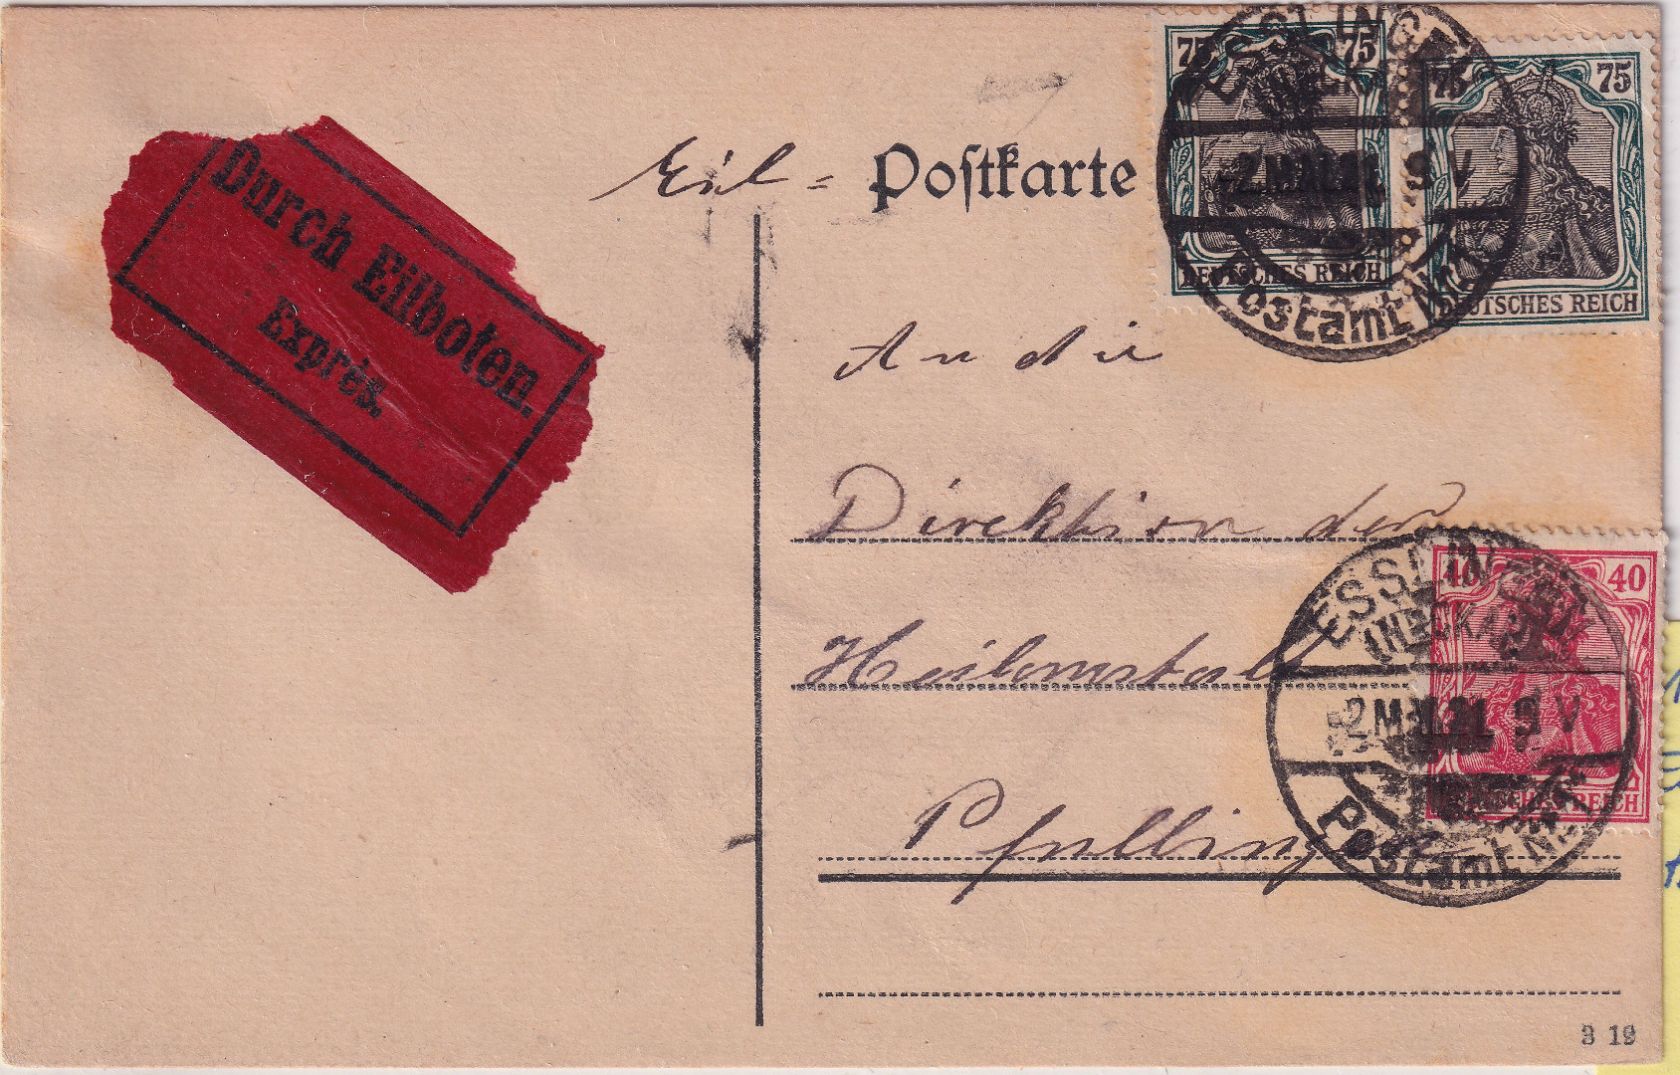 Durch Eilboten.
Exprès.
Eil = Postkarte
75 75
DEUTSCHES REICH
75 75
DEUTSCHES REICH
ESSLINGEN
2.MAI.21 9 V
Postamt Nr.
An die
Direktion der
Heilanstalt
Pfullingen
40 40
DEUTSCHES REICH
ESSLINGEN
(NECKAR)
2.MAI.21 9 V
Postamt Nr.
3 19